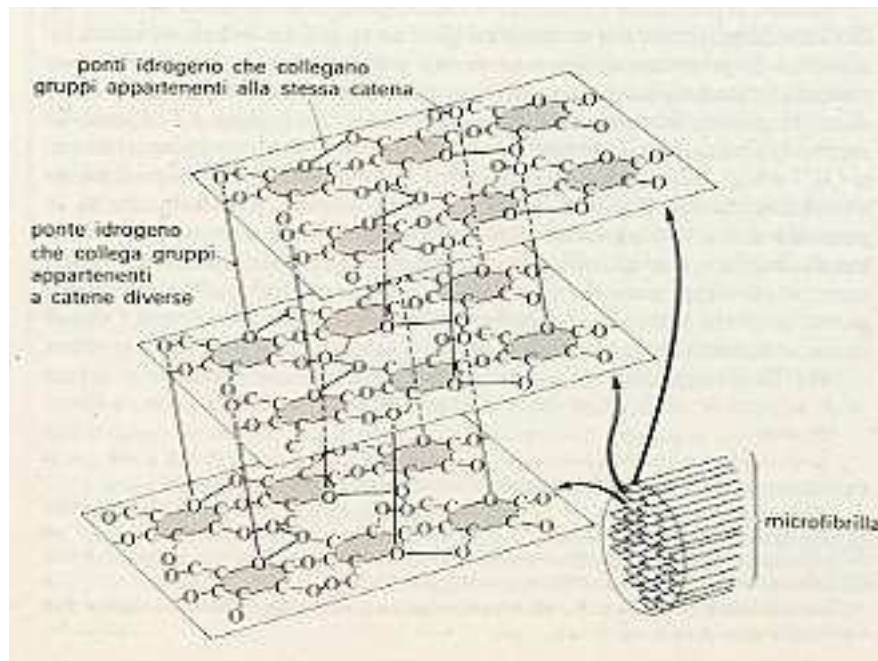 ponti idrogeno che collegano
gruppi appartenenti alla stessa catena
ponte idrogeno
che collega gruppi
appartenenti
a catene diverse
microfibrilla